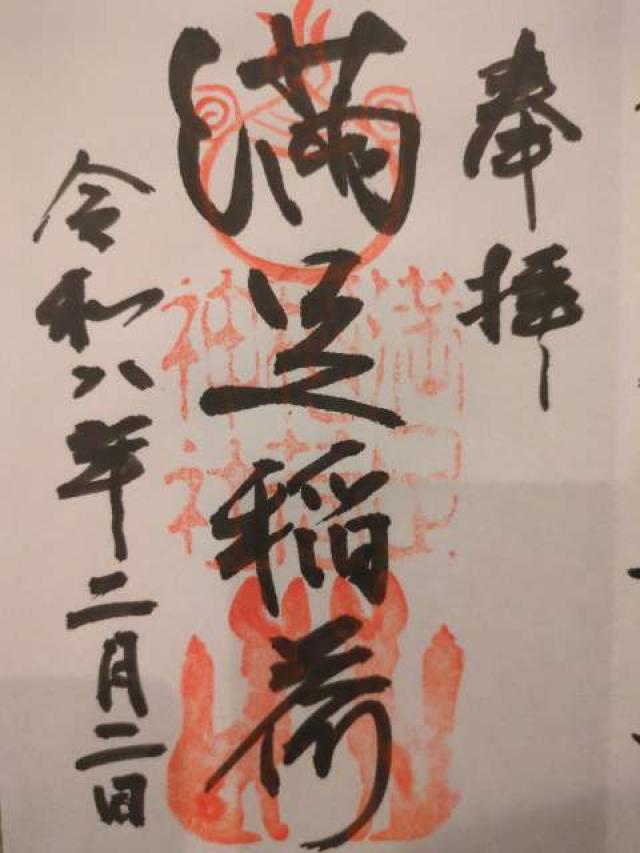 奉拝
満足稲荷
令和八年二月二日